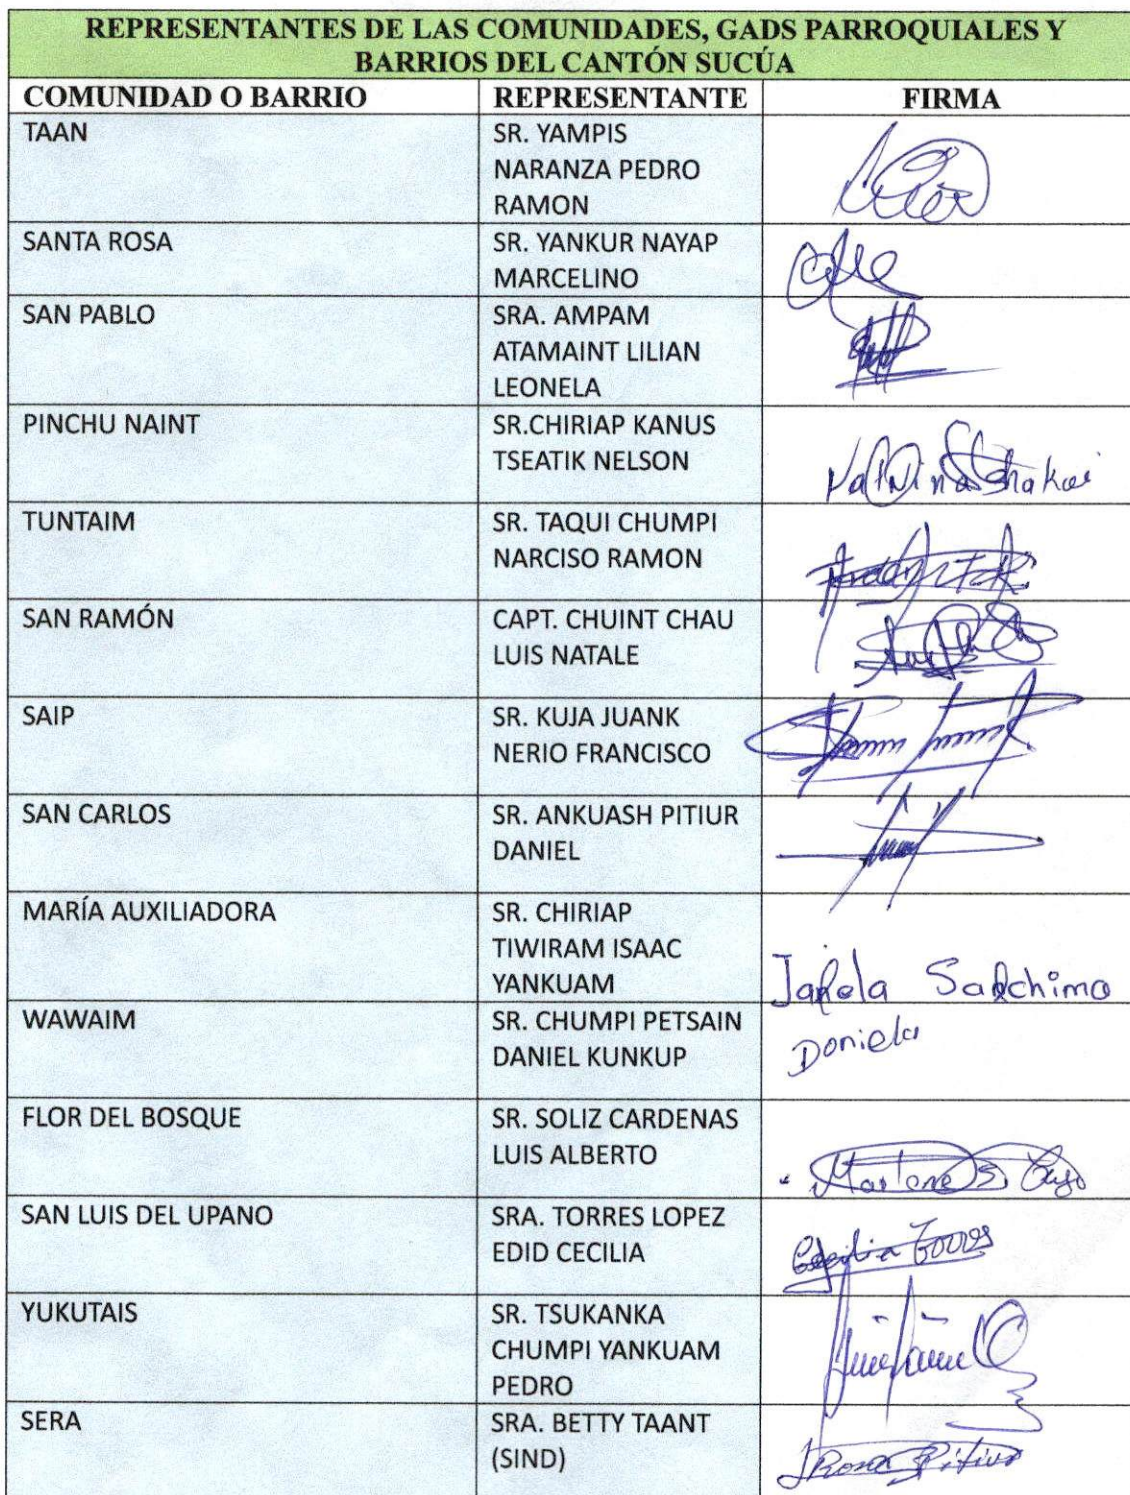 REPRESENTANTES DE LAS COMUNIDADES, GADS PARROQUIALES Y
BARRIOS DEL CANTÓN SUCÚA
COMUNIDAD O BARRIO REPRESENTANTE FIRMA
TAAN SR. YAMPIS
NARANZA PEDRO
RAMON
SANTA ROSA SR. YANKUR NAYAP
MARCELINO
SAN PABLO SRA. AMPAM
ATAMAINT LILIAN
LEONELA
PINCHU NAINT SR.CHIRIAP KANUS
TSEATIK NELSON
TUNTAIM SR. TAQUI CHUMPI
NARCISO RAMON
SAN RAMÓN CAPT. CHUINT CHAU
LUIS NATALE
SAIP SR. KUJA JUANK
NERIO FRANCISCO
SAN CARLOS SR. ANKUASH PITIUR
DANIEL
MARÍA AUXILIADORA SR. CHIRIAP
TIWIRAM ISAAC
YANKUAM
WAWAIM SR. CHUMPI PETSAIN
DANIEL KUNKUP Daniela
FLOR DEL BOSQUE SR. SOLIZ CARDENAS
LUIS ALBERTO
SAN LUIS DEL UPANO SRA. TORRES LOPEZ
EDID CECILIA Cecilia Torres
YUKUTAIS SR. TSUKANKA
CHUMPI YANKUAM
PEDRO
SERA SRA. BETTY TAANT
(SIND) Rosa Pitiur